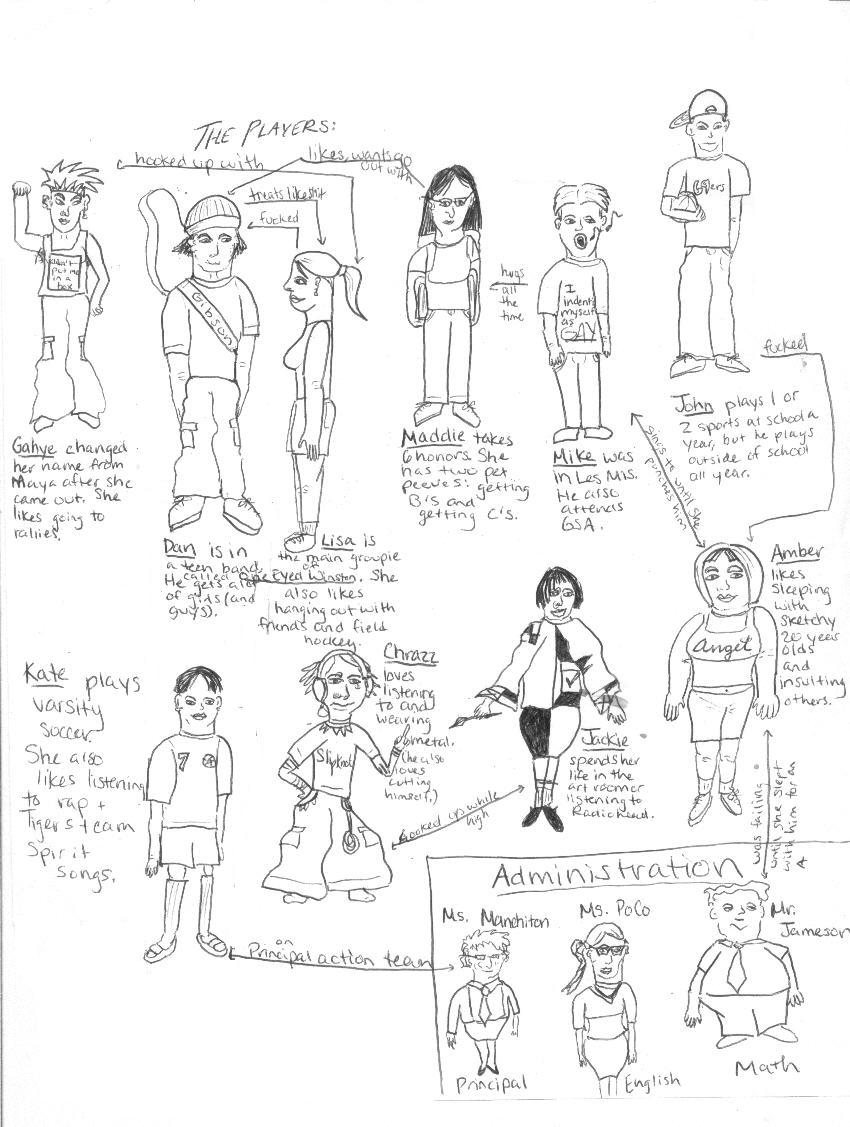 THE PLAYERS:
hooked up with
likes, wants go
out with
treats like shit
fucked
hugs
all
the
time
fucked
put me
in a
box
Gibson
I
indentify
myself
as
GAY
Gahye changed
her name from
Maya after she
came out. She
likes going to
rallies.
Dan is in
a teen band
called One Eyed Winston.
He gets a lot
of girls (and
guys).
Lisa is
the main groupie
of
She
also likes
hanging out with
friends and field
hockey.
Maddie takes
6 honors. She
has two pet
peeves: getting
B's and
getting C's.
Mike was
in Les Mis.
He also
attends
GSA.
John plays 1 or
2 sports at school a
year, but he plays
outside of school
all year.
sings to until she
punches him
Amber
likes
sleeping
with
sketchy
20 year
olds
and
insulting
others.
Angel
Kate plays
varsity
soccer.
She also
likes listening
to rap +
Tigers team
Spirit
Songs.
7
Chrazz
loves
listening
to and
wearing
metal.
(he also
loves
cutting
himself.)
Slipknot
Jackie
spends her
life in the
art room or
listening to
Radiohead.
hooked up while
high
was failing
until she slept
with him for an
A
on
Principal action team
Administration
Ms. Manchiton
Ms. PoCo
Mr.
Jameson
Principal
English
Math